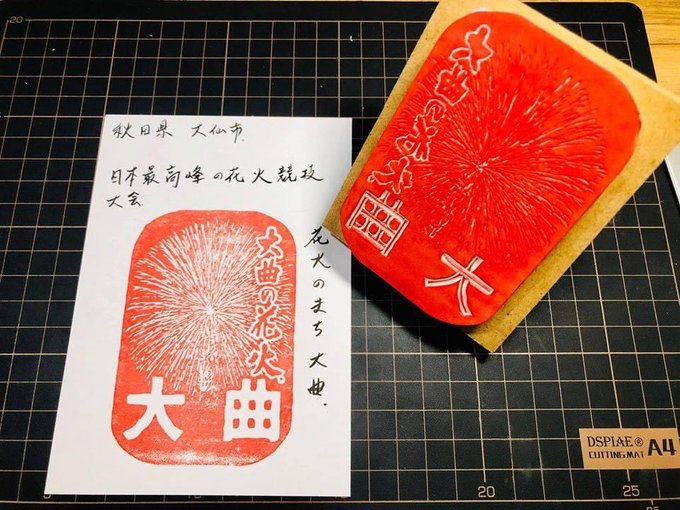 秋田県 大仙市
日本最高峰の花火競技
大会
花火のまち 大曲.
大曲の花火.
大 曲
大曲の花火
大曲
DSPIAE®
CUTTING MAT A4
20
5
20
25